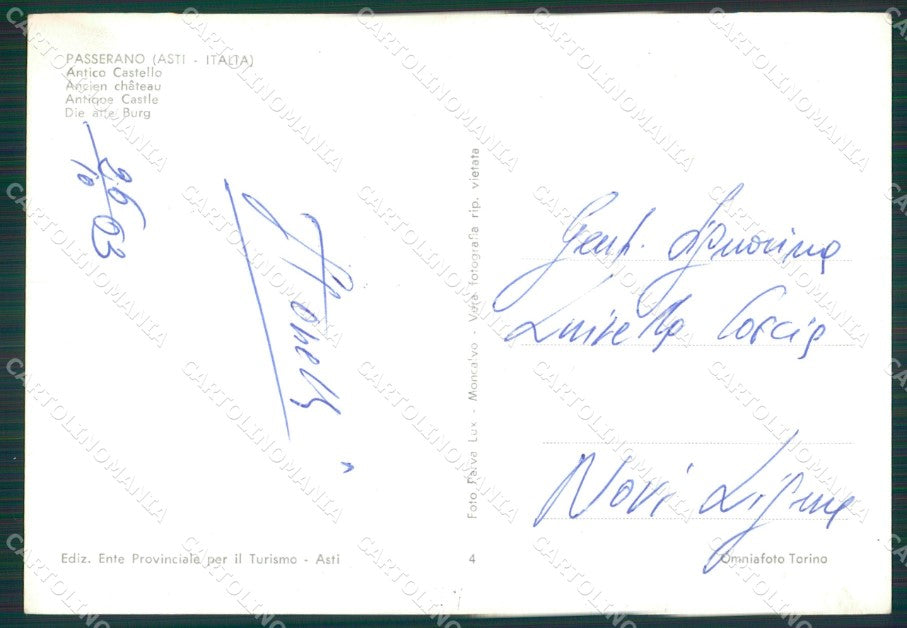 PASSERANO (ASTI - ITALIA)
Antico Castello
Ancien château
Antique Castle
Die alte Burg
Gent. Signorina
Luisella
Novi Ligure
Foto Paiva Lux - Moncalvo - Vera fotografia rip. vietata
Ediz. Ente Provinciale per il Turismo - Asti
4
Omniafoto Torino
CARTOLINOMANIA